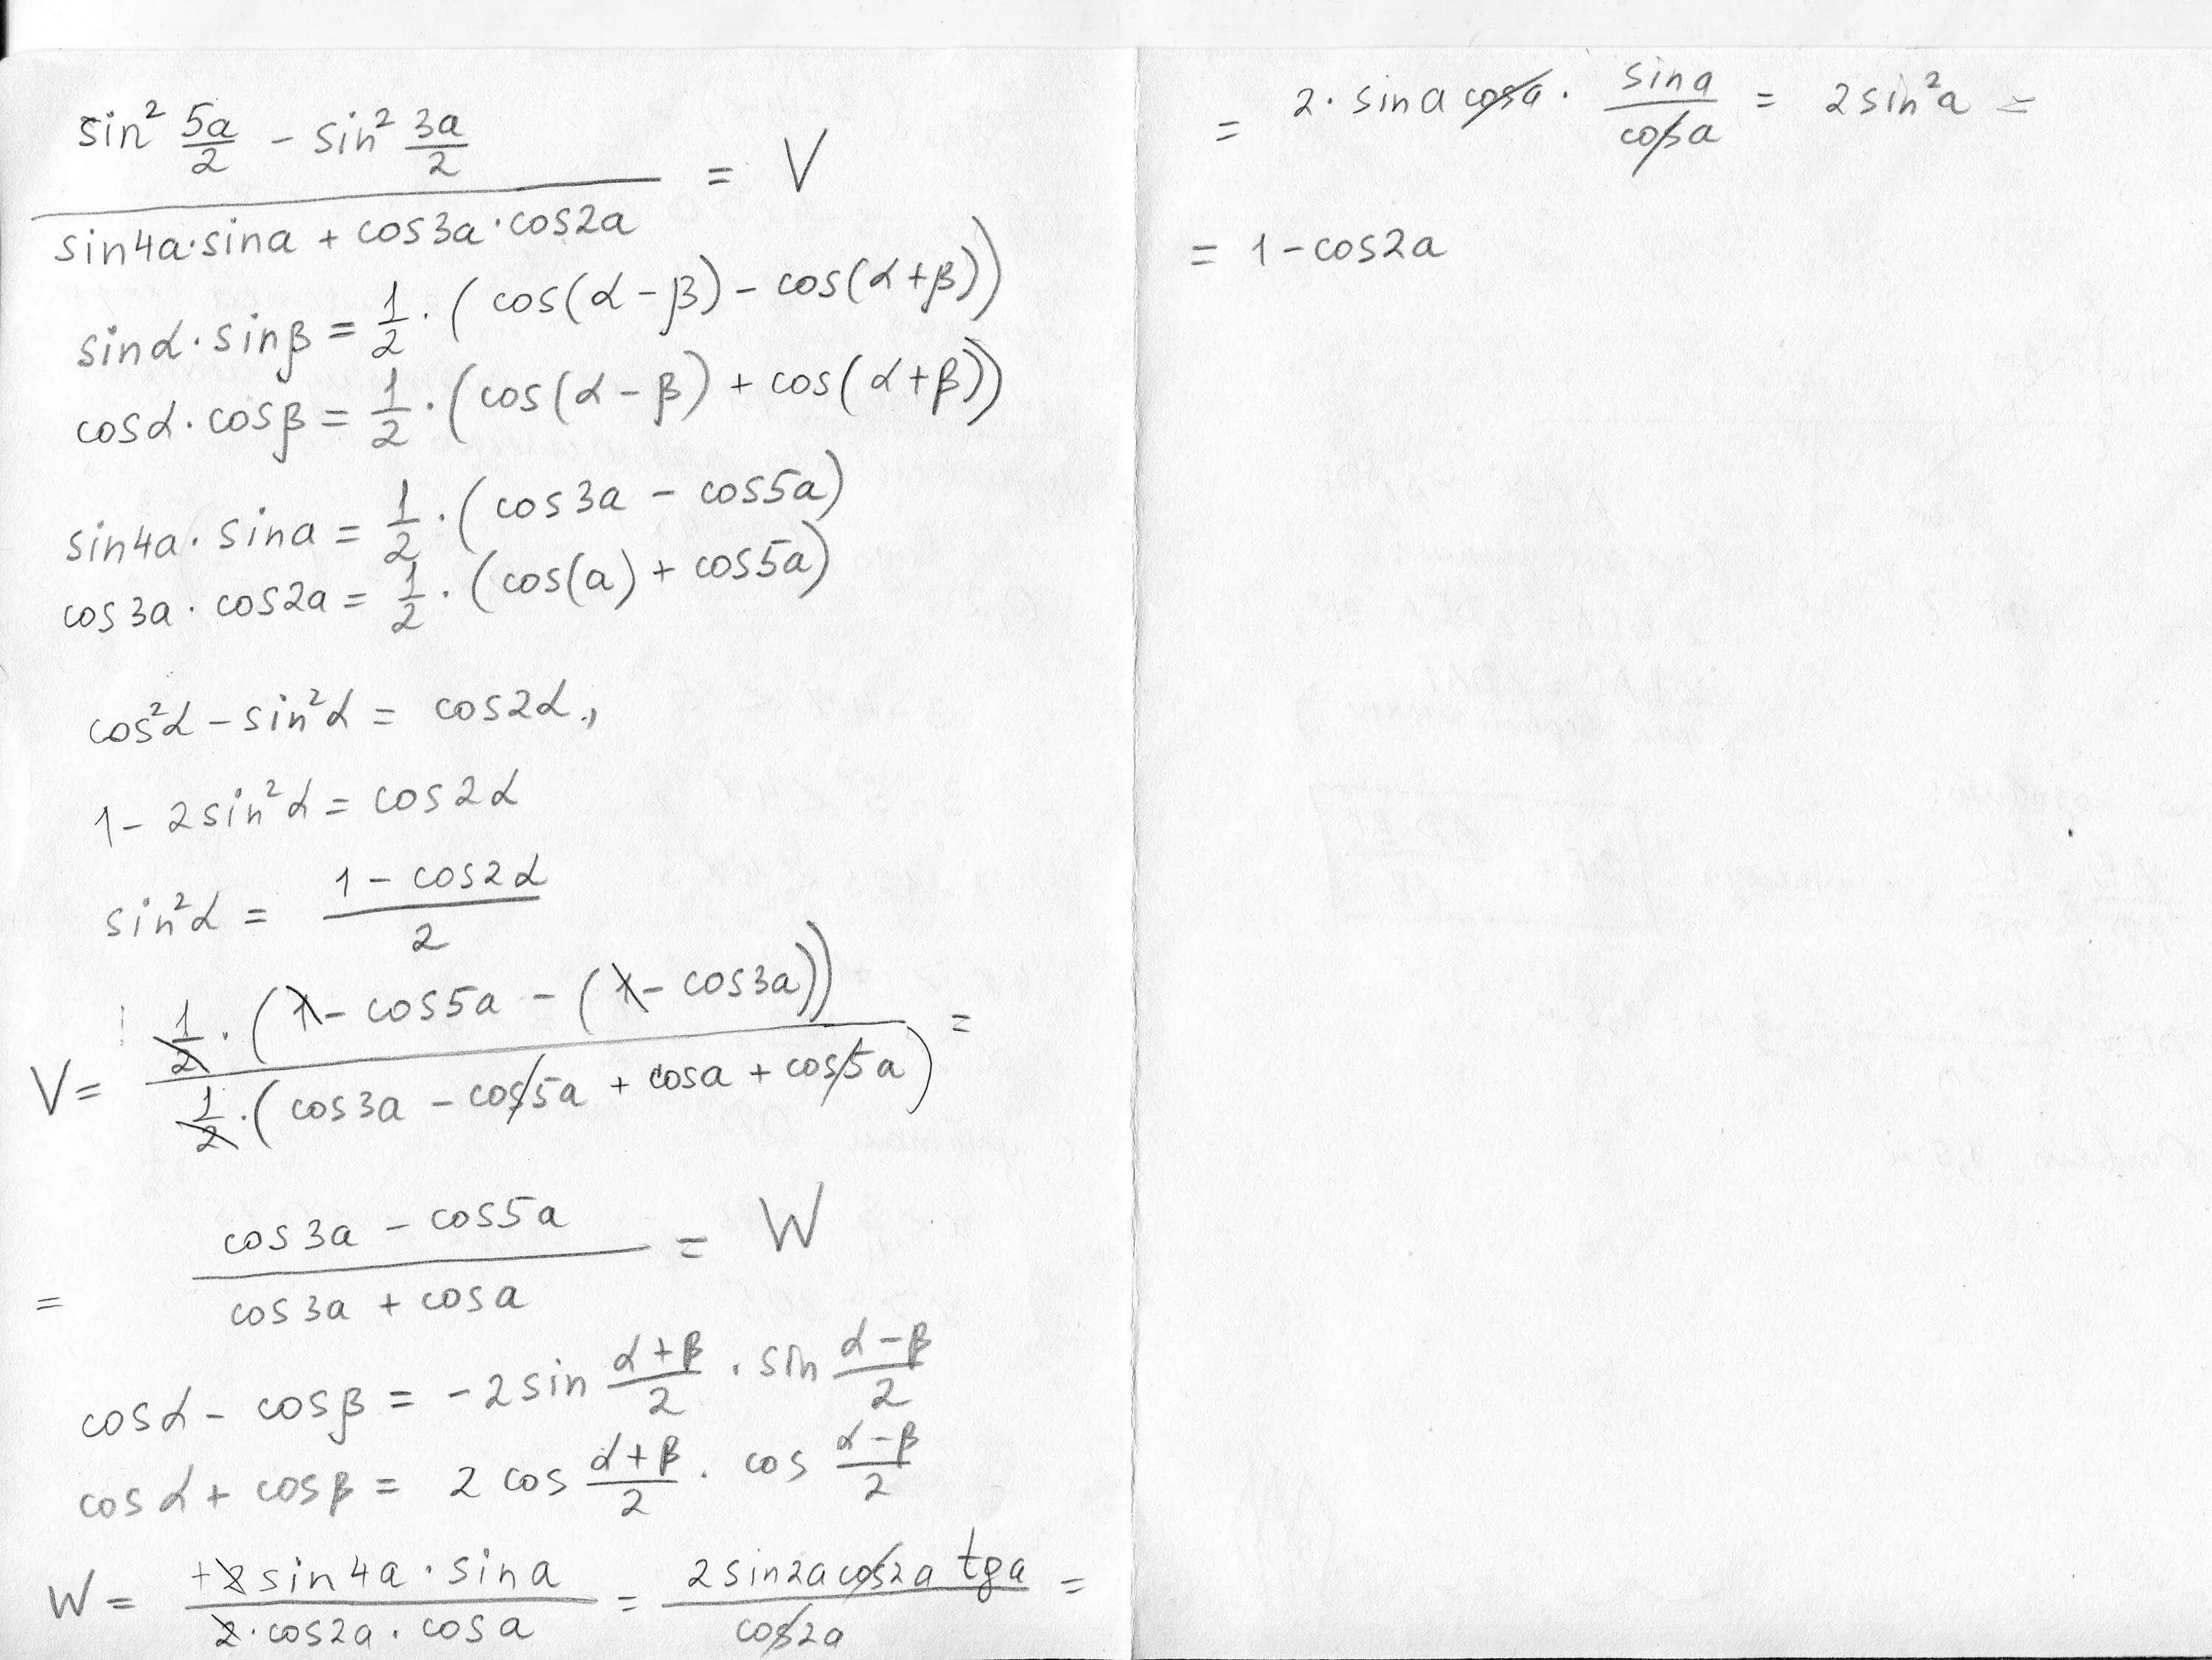 sin² 5a/2 - sin² 3a/2
= V
sin4a·sina + cos3a·cos2a
sinα·sinβ = 1/2·(cos(α-β) - cos(α+β))
cosα·cosβ = 1/2·(cos(α-β) + cos(α+β))
sin4a·sina = 1/2·(cos3a - cos5a)
cos3a·cos2a = 1/2·(cos(a) + cos5a)
cos²α - sin²α = cos2α,
1 - 2sin²α = cos2α
sin²α = (1 - cos2α)/2
V = 1/2·(1 - cos5a - (1 - cos3a)) =
1/2·(cos3a - cos5a + cosa + cos5a)
= cos3a - cos5a = W
cos3a + cosa
cosα - cosβ = -2sin (α+β)/2 · sin (α-β)/2
cosα + cosβ = 2cos (α+β)/2 · cos (α-β)/2
W = +2sin4a·sina / 2·cos2a·cosa = 2sin2acos2a tga / cos2a =
= 2·sinacosa · sina/cosa = 2sin²a =
= 1 - cos2a